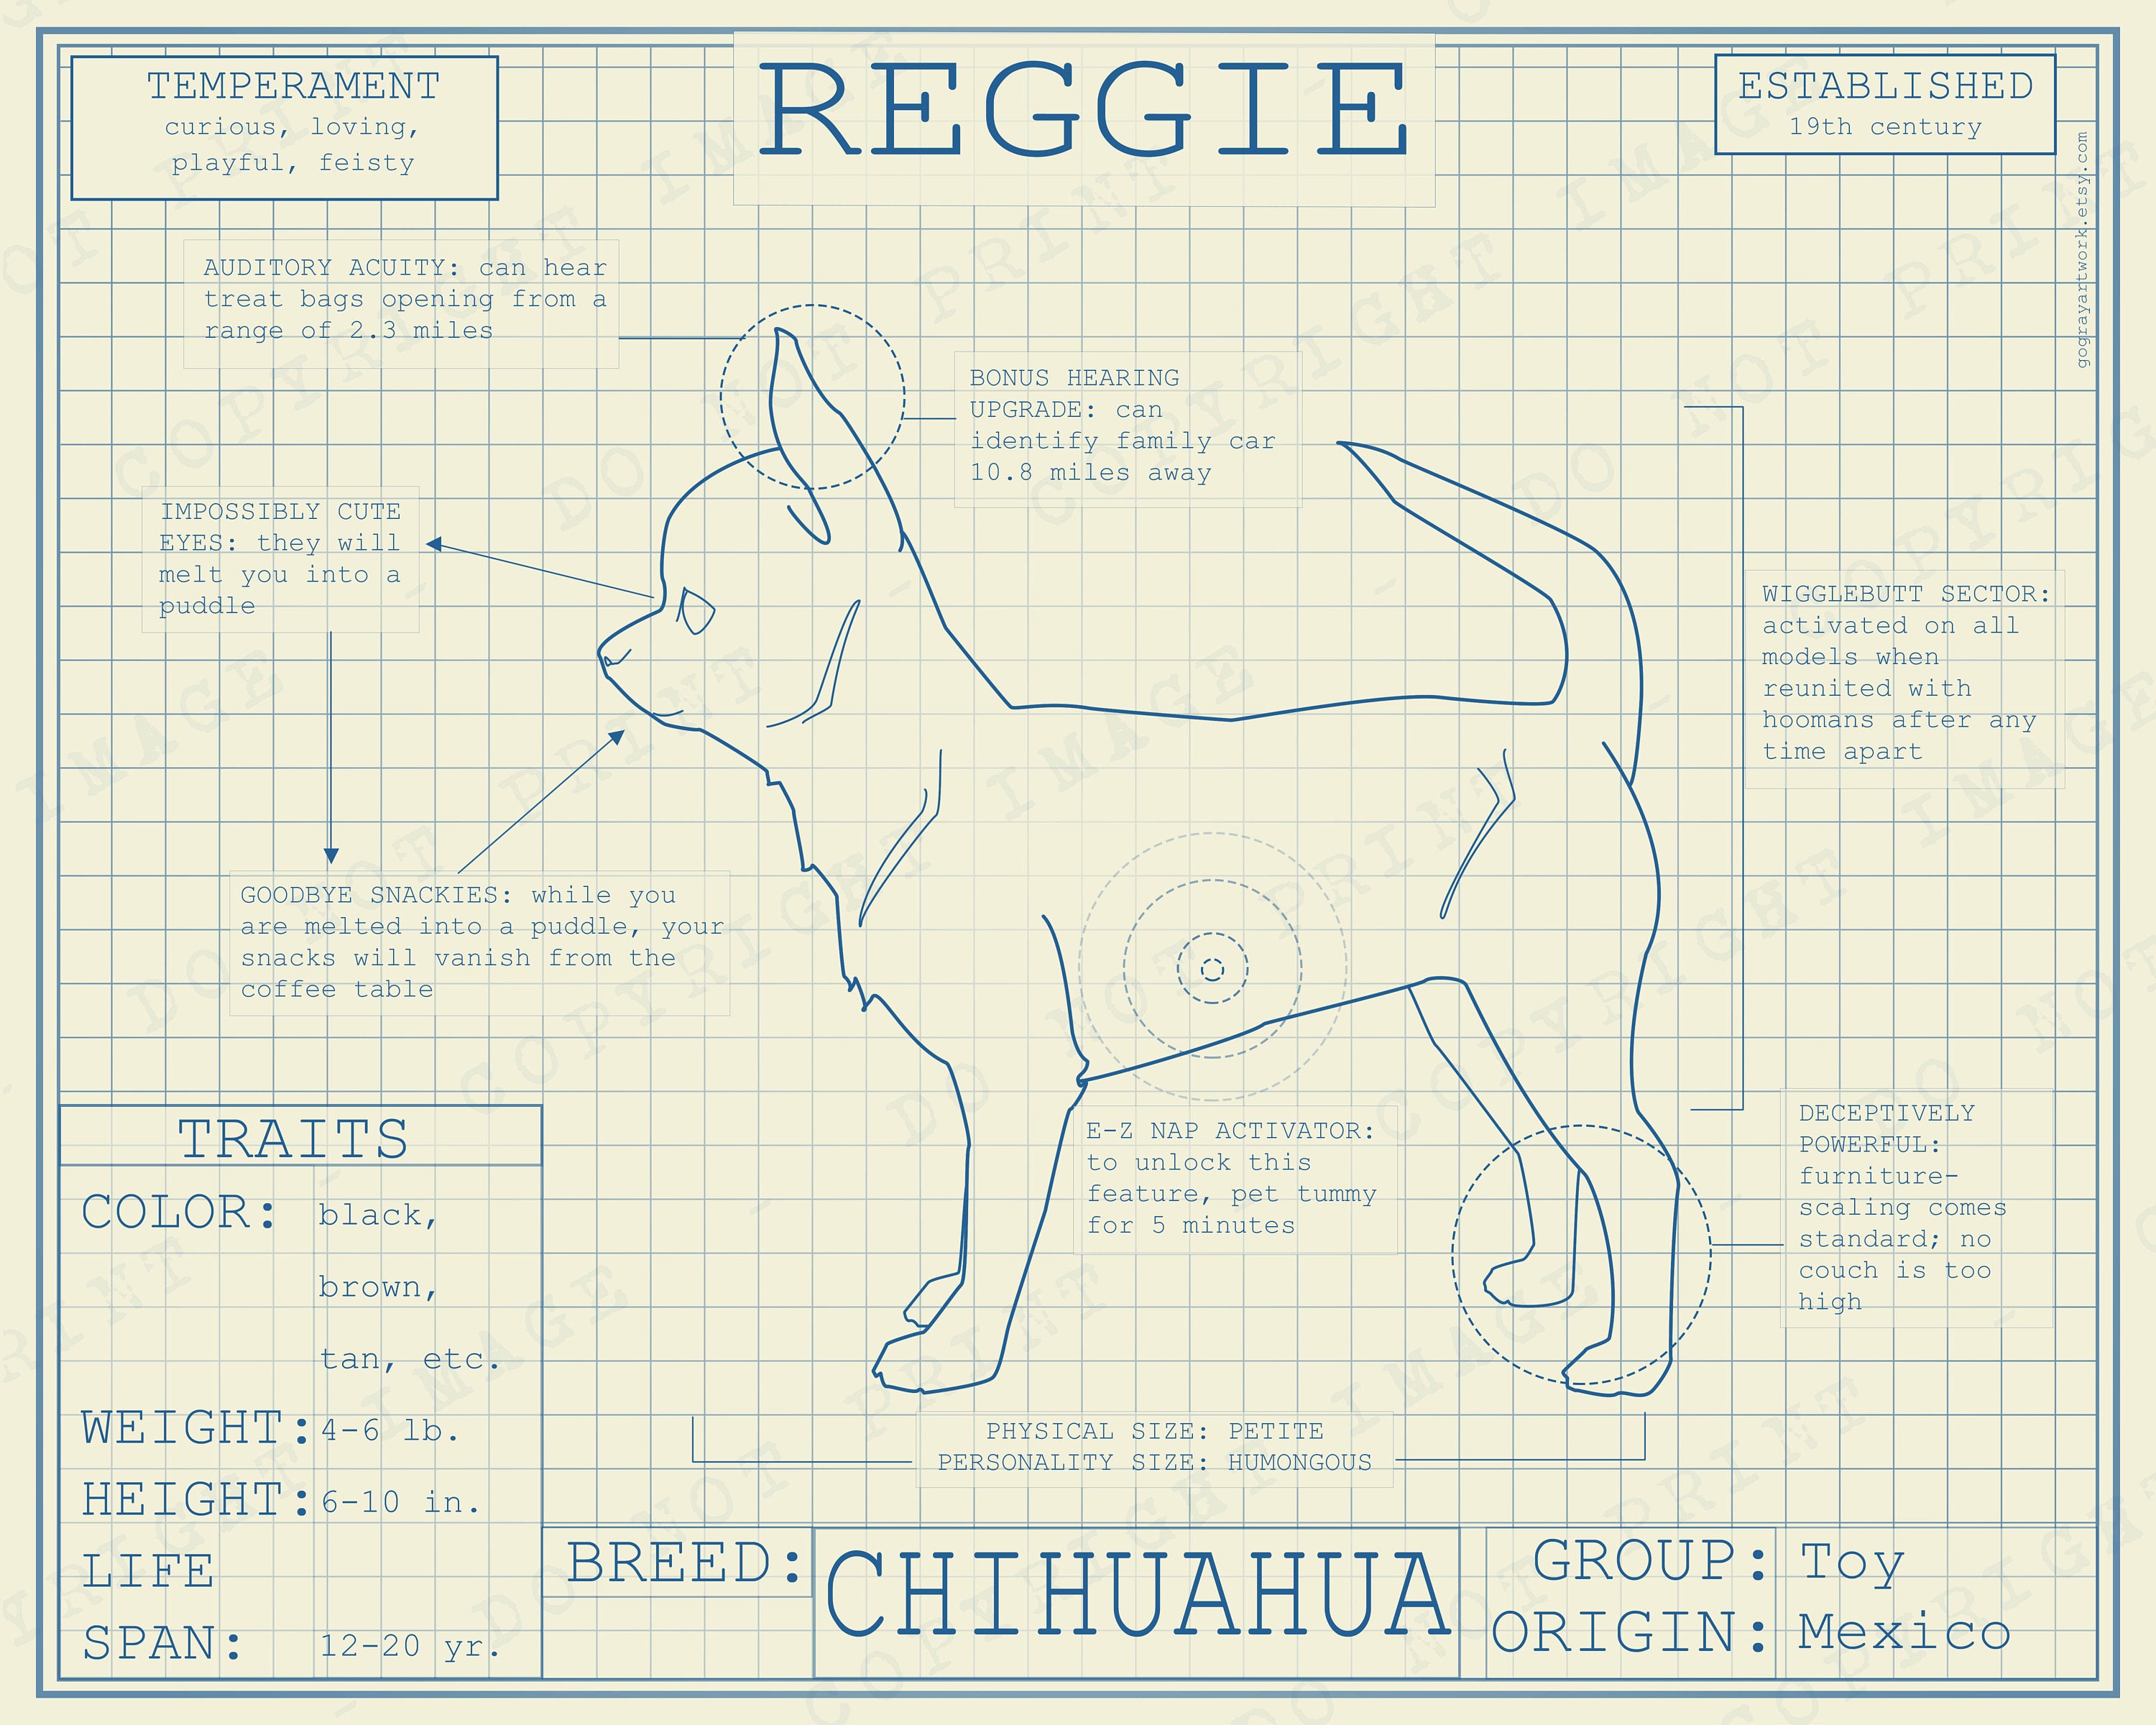 REGGIE
TEMPERAMENT
curious, loving,
playful, feisty
ESTABLISHED
19th century
gograyartwork.etsy.com
AUDITORY ACUITY: can hear
treat bags opening from a
range of 2.3 miles
BONUS HEARING
UPGRADE: can
identify family car
10.8 miles away
IMPOSSIBLY CUTE
EYES: they will
melt you into a
puddle
WIGGLEBUTT SECTOR:
activated on all
models when
reunited with
hoomans after any
time apart
GOODBYE SNACKIES: while you
are melted into a puddle, your
snacks will vanish from the
coffee table
E-Z NAP ACTIVATOR:
to unlock this
feature, pet tummy
for 5 minutes
DECEPTIVELY
POWERFUL:
furniture-
scaling comes
standard; no
couch is too
high
PHYSICAL SIZE: PETITE
PERSONALITY SIZE: HUMONGOUS
TRAITS
COLOR: black,
brown,
tan, etc.
WEIGHT: 4-6 lb.
HEIGHT: 6-10 in.
LIFE
SPAN: 12-20 yr.
BREED: CHIHUAHUA
GROUP: Toy
ORIGIN: Mexico
COPYRIGHT IMAGE - DO NOT PRINT